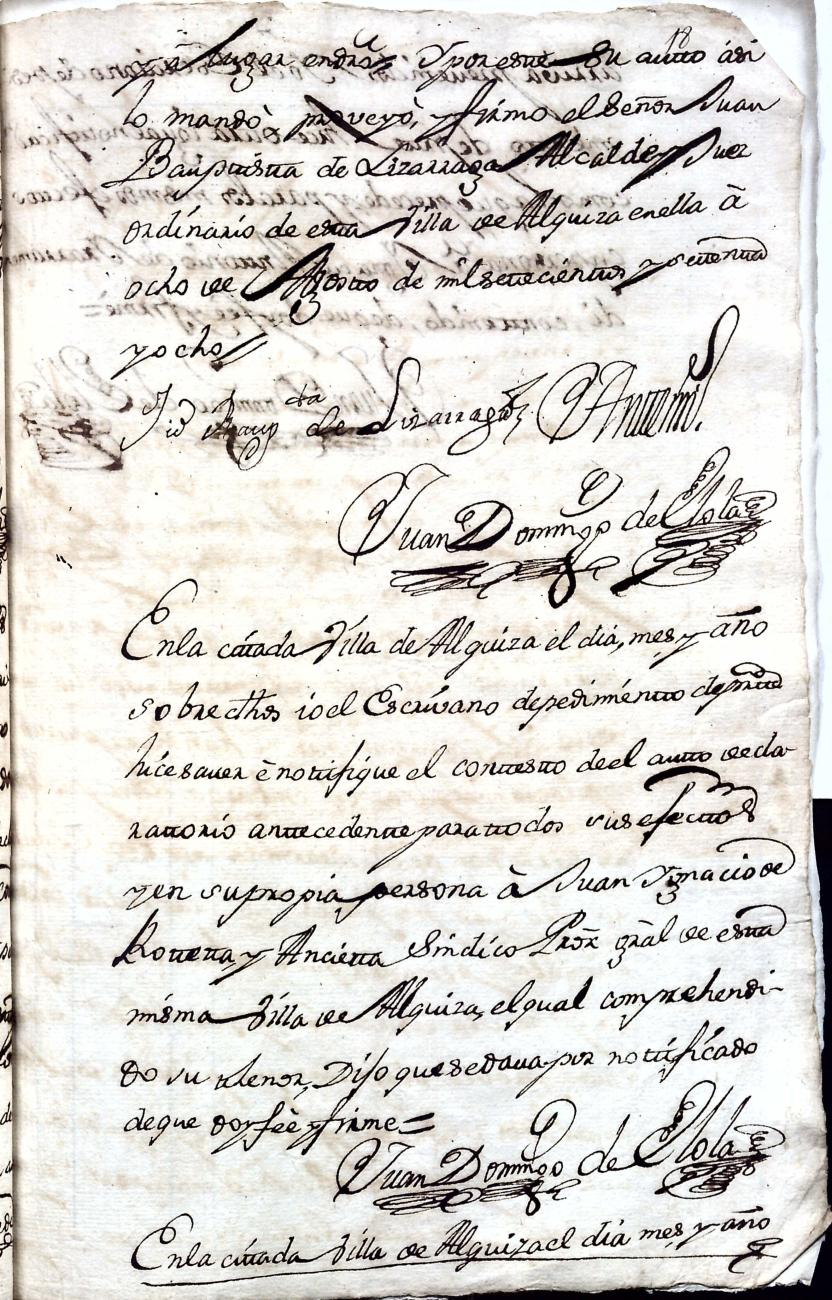 18
y á lugar en dro. Y por este su autto asi
lo mandò proveyò, y firmo el Señor Juan
Bauptistta de Lizarraga Alcalde y Juez
ordinario de estta Villa de Alquiza en ella â
ocho de Agostto de mil settecienttos y settentta
y ocho
Jn Baupta de Lizarraga Antte mi
Juan Domingo de Elola
En la cittada Villa de Alquiza el dia, mes, y año
sobre dhos io el Escrivano de pedimientto de partte
hice saver è nottifique el conttestto de el autto decla-
rattorio anttecedentte para ttodos sus efecttos
y en su propia persona à Juan Ygnacio de
Rotteta, y Ancietta Sindico Pror gral de estta
misma Villa de Alquiza, el qual comprehendi-
do su thenor, Dijo que se dava por nottificado
de que doy fèe y firme=
Juan Domingo de Elola
En la cittada Villa de Alquiza el dia mes, y año